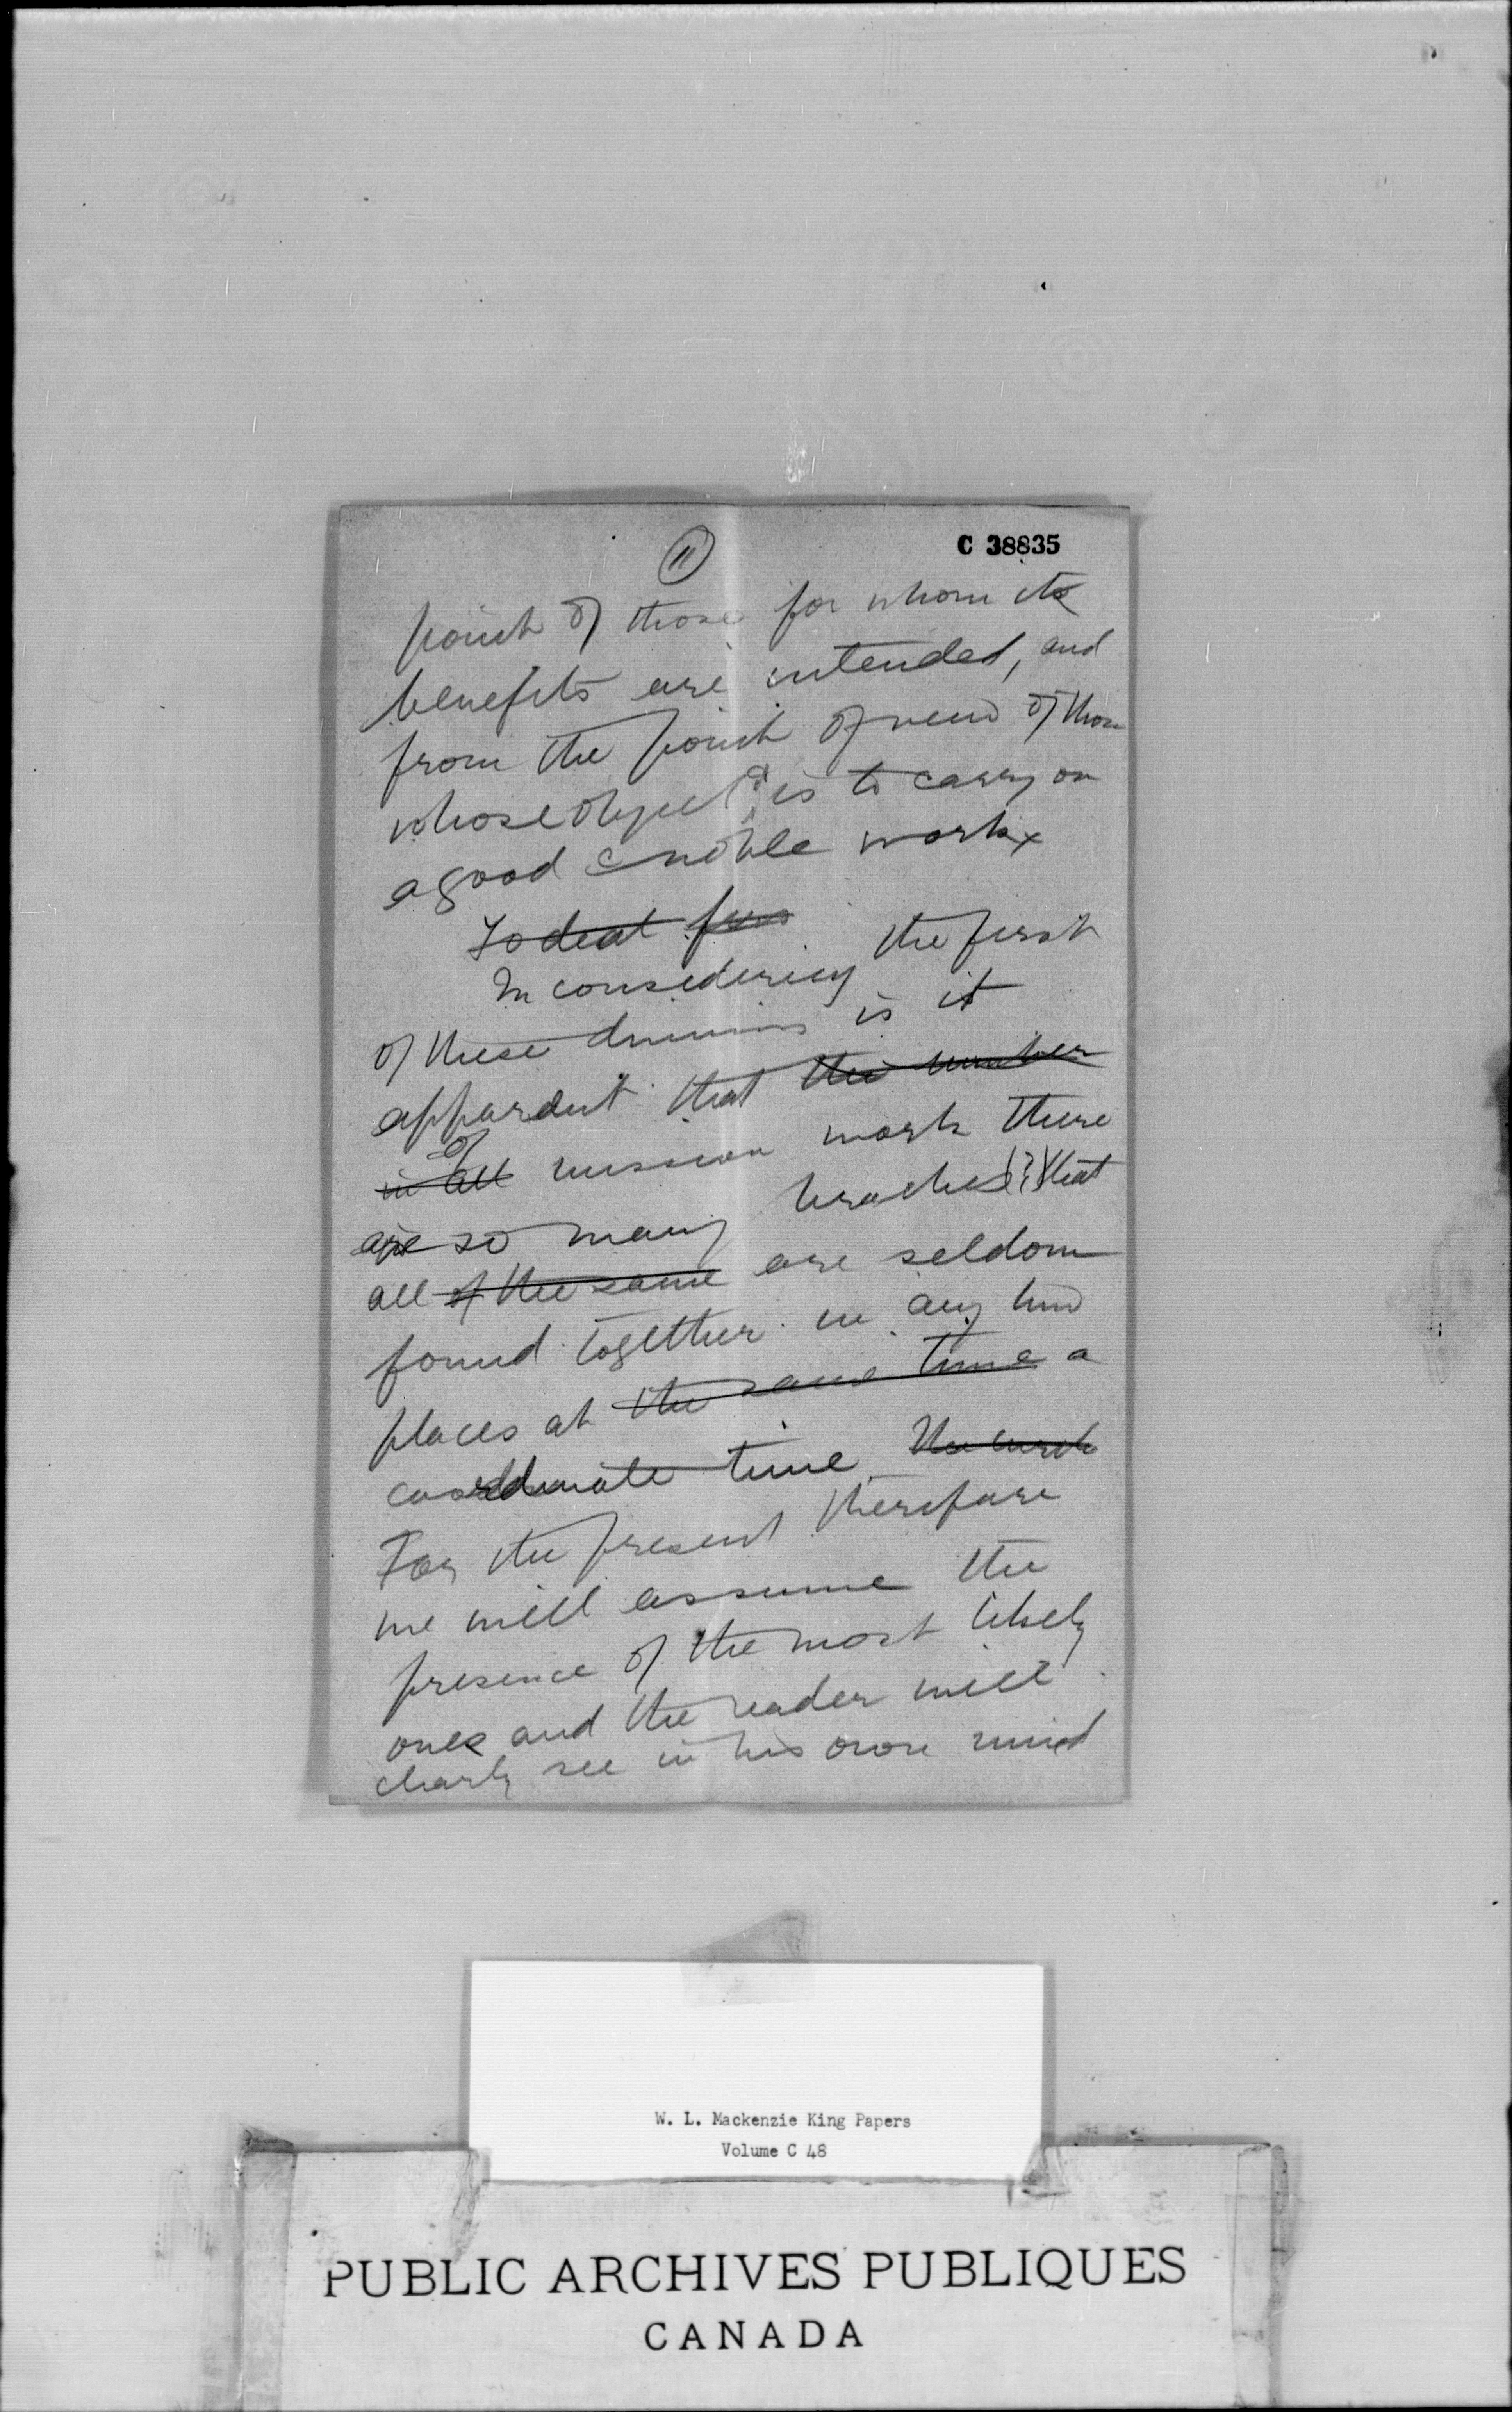 11
C 38835
point of those for whom its
benefits are intended, and
from the point of view of those
whose object it is to carry on
a good & noble work
To deal
In considering the first
of these divisions is it
apparent that the number
of
in all mission work there
are so many that
all of the same are seldom
found together in any two
places at the same time a
coordinate time
For the present therefore
we will assume the
presence of the most likely
ones and the reader will
clearly see in his own mind
W. L. Mackenzie King Papers
Volume C 48
PUBLIC ARCHIVES PUBLIQUES
CANADA